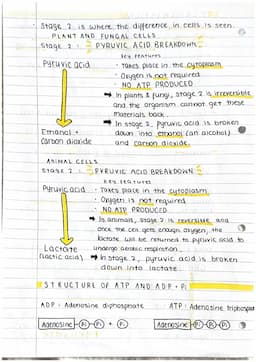 · Stage 2 is where the difference in cells is seen.
PLANT AND FUNGAL CELLS
Stage 2 : PYRUVIC ACID BREAKDOWN
Key features
Pyruvic acid
· Takes place in the cytoplasm
· Oxygen is not required
· NO ATP PRODUCED
→ In plants & fungi, stage 2 is irreversible
and the organism cannot get these
materials back.
→ In stage 2, pyruvic acid is broken
down into ethanol (an alcohol)
and carbon dioxide.
Ethanol +
carbon dioxide
ANIMAL CELLS
Stage 2 : PYRUVIC ACID BREAKDOWN
Key features
Pyruvic acid
· Takes place in the cytoplasm
· Oxygen is not required
· NO ATP PRODUCED
→ In animals, stage 2 is reversible and
once the cell gets enough oxygen, the
lactate will be returned to pyruvic acid to
undergo aerobic respiration.
→ In stage 2, pyruvic acid is broken
down into lactate.
Lactate
(lactic acid)
STRUCTURE OF ATP AND ADP + Pi
ADP : Adenosine diphosphate
ATP : Adenosine triphospat
Adenosine Pi Pi + Pi
Adenosine Pi Pi Pi